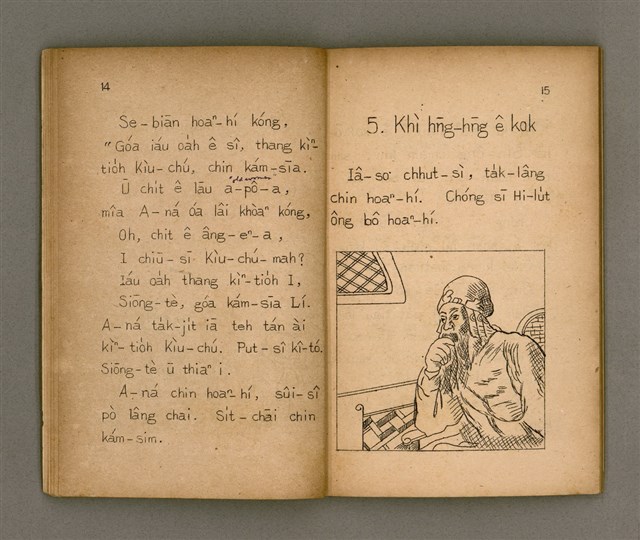 14
Se-biān hoaⁿ-hí kóng,
"Góa iáu oa̍h ê sî, thang kìⁿ-
tio̍h Kìu-chú, chin kám-sīa.
Ū chi̍t ê lāu a-pô-a,
mîa A-ná óa lâi khòaⁿ kóng,
Oh, chi̍t ê âng-eⁿ-a,
I chiū-sī Kìu-chú-mah?
Iáu oa̍h thang kìⁿ-tio̍h I,
Siōng-tè, góa kám-sīa Lí.
A-ná ta̍k-ji̍t iā teh tán ài
kìⁿ-tio̍h Kìu-chú. Put-sî kî-tó.
Siōng-tè ū thiaⁿ i.
A-ná chin hoaⁿ-hí, sûi-sî
pò lâng chai. Si̍t-chāi chin
kám-sim.
15
5. Khì hn̄g-hn̄g ê kok
Iâ-so͘ chhut-sì, ta̍k-lâng
chin hoaⁿ-hí. Chóng sī Hi-lu̍t
Ông bô hoaⁿ-hí.